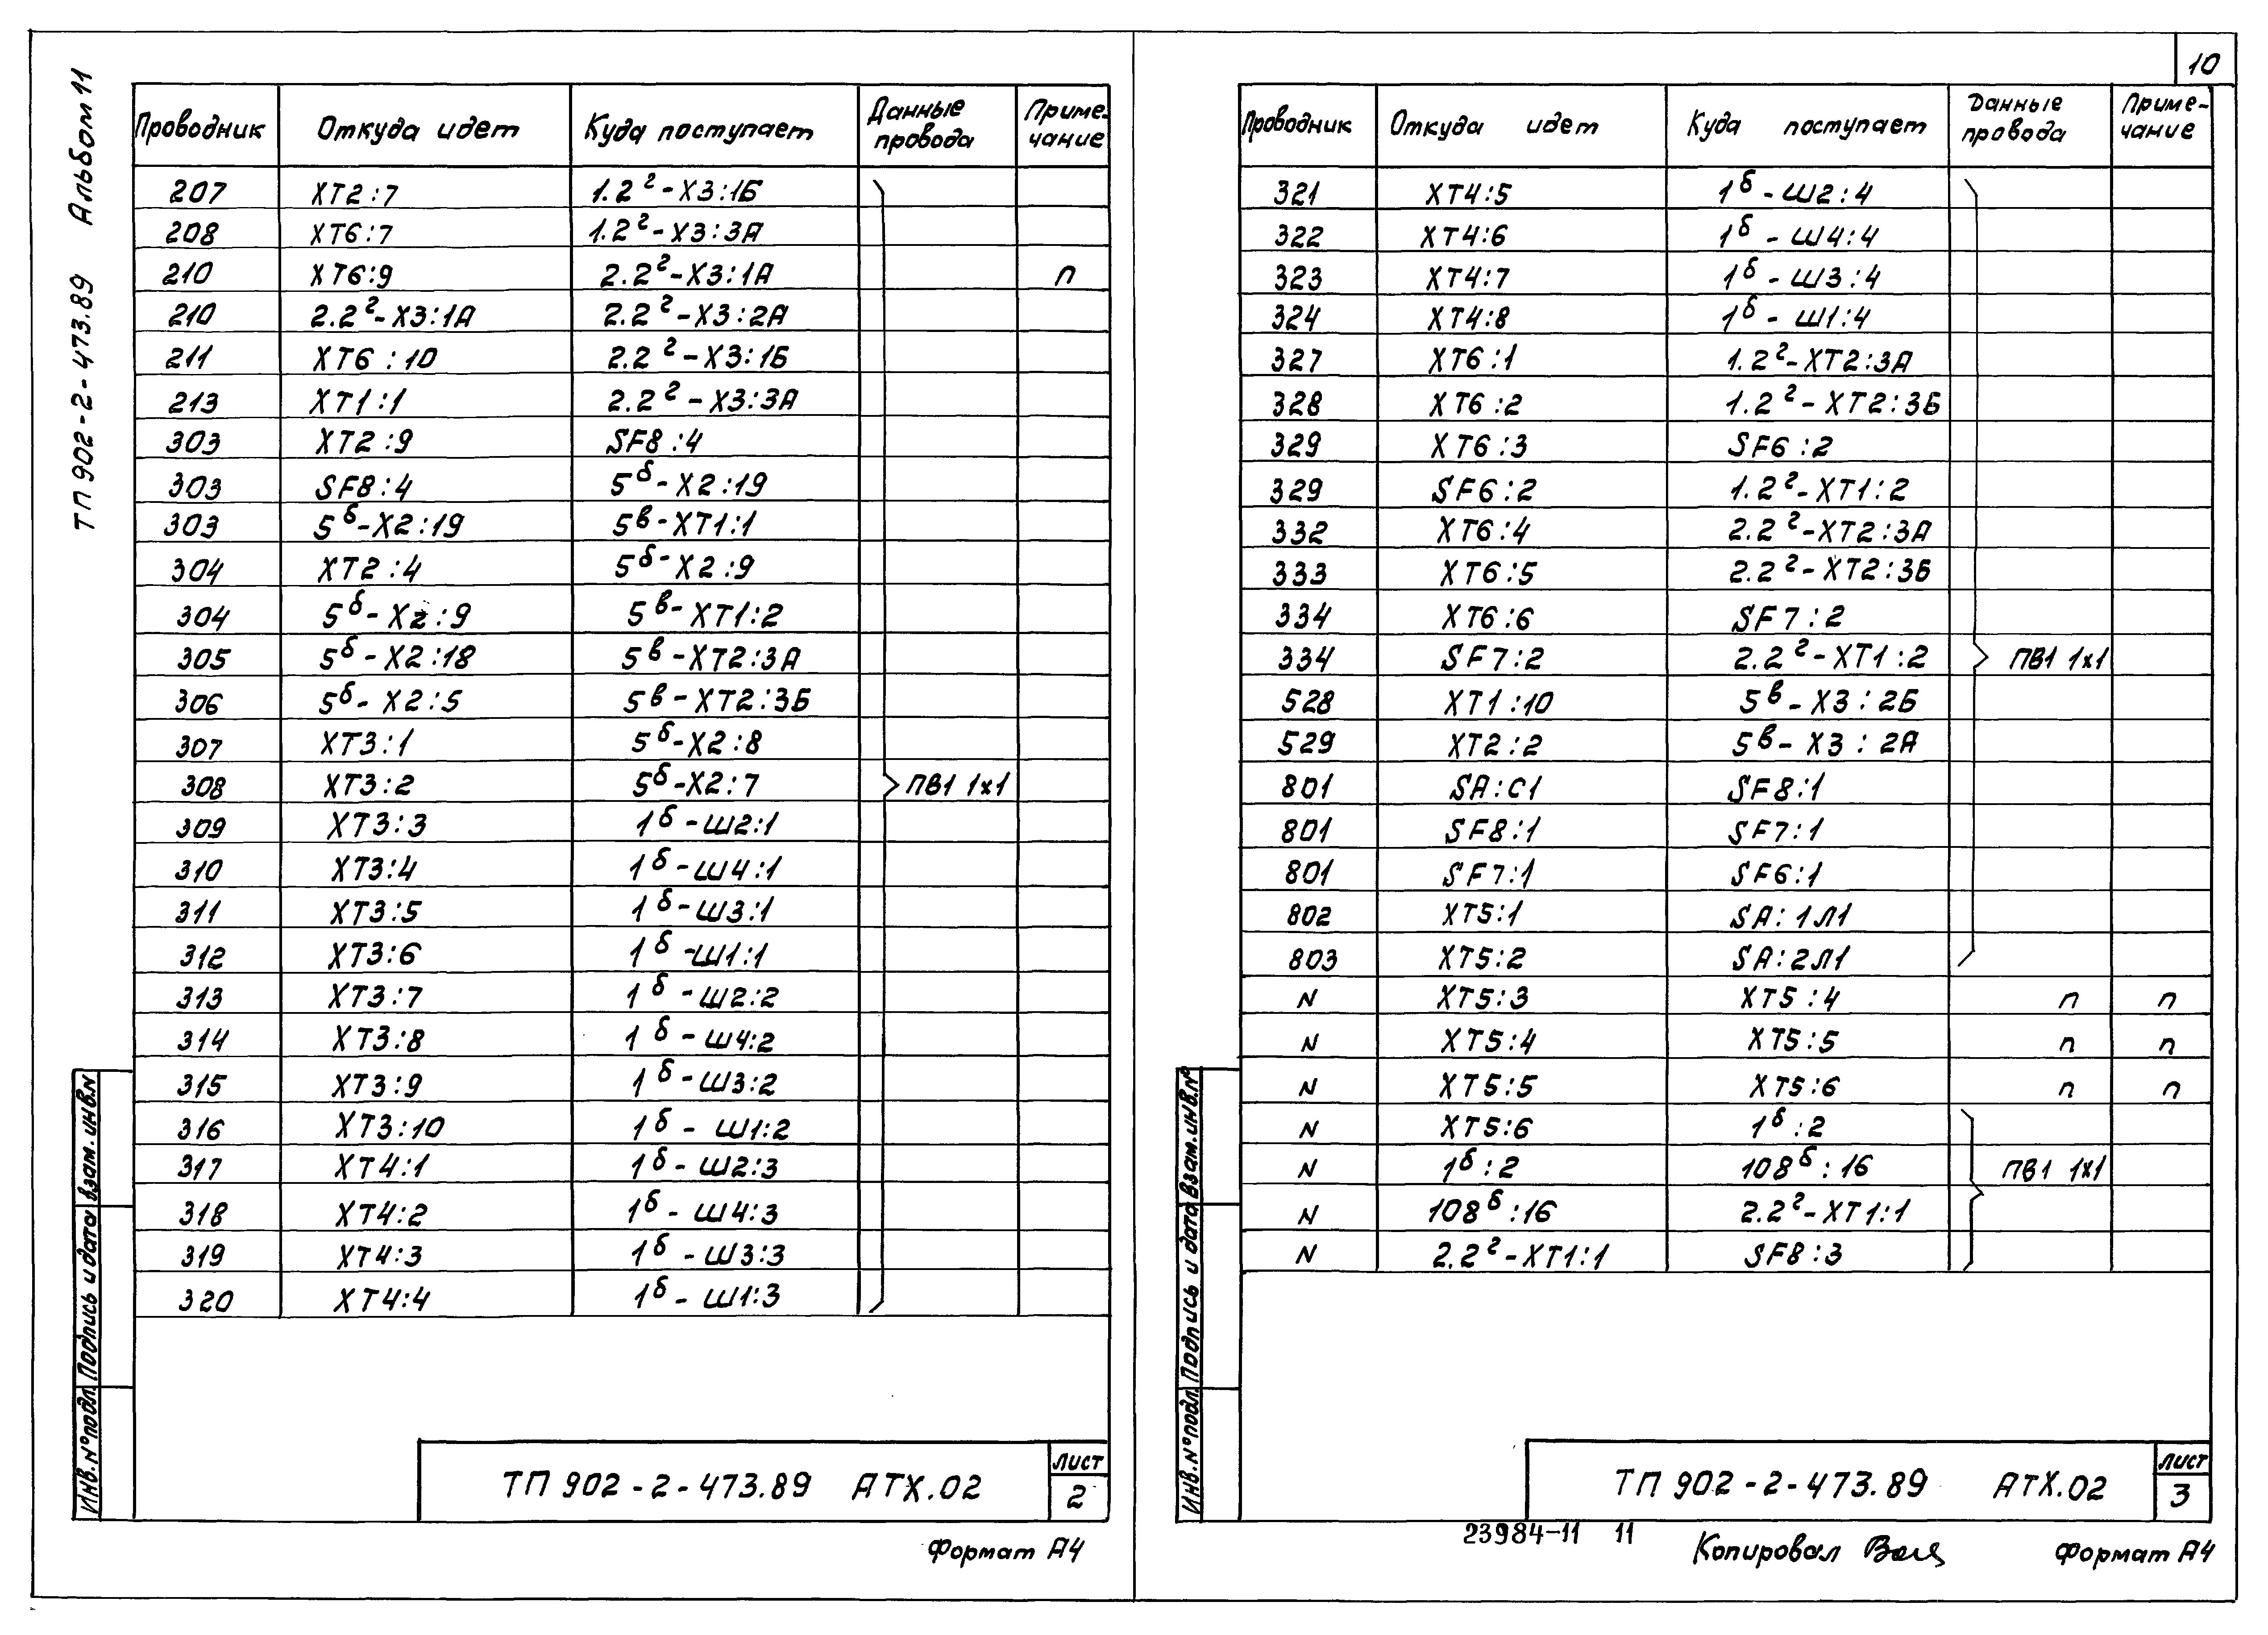 ТП 902-2-473.89 Альбом 11
Проводник Откуда идет Куда поступает Данные провода Приме-чание
207 ХТ2:7 1.2г-Х3:1Б
208 ХТ6:7 1.2г-Х3:3А
210 ХТ6:9 2.2г-Х3:1А п
210 2.2г-Х3:1А 2.2г-Х3:2А
211 ХТ6:10 2.2г-Х3:1Б
213 ХТ1:1 2.2г-Х3:3А
303 ХТ2:9 SF8:4
303 SF8:4 5б-Х2:19
303 5б-Х2:19 5в-ХТ1:1
304 ХТ2:4 5б-Х2:9
304 5б-Х2:9 5в-ХТ1:2
305 5б-Х2:18 5в-ХТ2:3А
306 5б-Х2:5 5в-ХТ2:3Б
307 ХТ3:1 5б-Х2:8
308 ХТ3:2 5б-Х2:7 ПВ1 1х1
309 ХТ3:3 1б-Ш2:1
310 ХТ3:4 1б-Ш4:1
311 ХТ3:5 1б-Ш3:1
312 ХТ3:6 1б-Ш1:1
313 ХТ3:7 1б-Ш2:2
314 ХТ3:8 1б-Ш4:2
315 ХТ3:9 1б-Ш3:2
316 ХТ3:10 1б-Ш1:2
317 ХТ4:1 1б-Ш2:3
318 ХТ4:2 1б-Ш4:3
319 ХТ4:3 1б-Ш3:3
320 ХТ4:4 1б-Ш1:3
Инв.N°подл. Подпись и дата Взам.инв.N
ТП 902-2-473.89 АТХ.02
Лист
2
Формат А4
10
Проводник Откуда идет Куда поступает Данные провода Приме-чание
321 ХТ4:5 1б-Ш2:4
322 ХТ4:6 1б-Ш4:4
323 ХТ4:7 1б-Ш3:4
324 ХТ4:8 1б-Ш1:4
327 ХТ6:1 1.2г-ХТ2:3А
328 ХТ6:2 1.2г-ХТ2:3Б
329 ХТ6:3 SF6:2
329 SF6:2 1.2г-ХТ1:2
332 ХТ6:4 2.2г-ХТ2:3А
333 ХТ6:5 2.2г-ХТ2:3Б
334 ХТ6:6 SF7:2
334 SF7:2 2.2г-ХТ1:2 ПВ1 1х1
528 ХТ1:10 5в-Х3:2Б
529 ХТ2:2 5в-Х3:2А
801 SA:C1 SF8:1
801 SF8:1 SF7:1
801 SF7:1 SF6:1
802 ХТ5:1 SA:1Л1
803 ХТ5:2 SA:2Л1
N ХТ5:3 ХТ5:4 п п
N ХТ5:4 ХТ5:5 п п
N ХТ5:5 ХТ5:6 п п
N ХТ5:6 1б:2
N 1б:2 108б:16 ПВ1 1х1
N 108б:16 2.2г-ХТ1:1
N 2.2г-ХТ1:1 SF8:3
Инв.N°подл. Подпись и дата Взам.инв.N°
ТП 902-2-473.89 АТХ.02
Лист
3
23984-11 11
Копировал
Формат А4